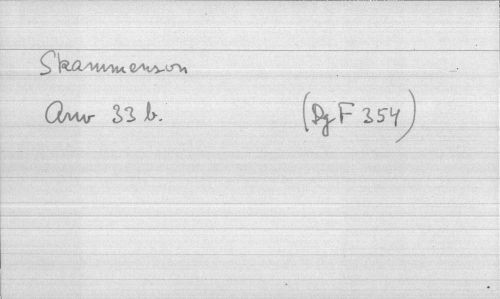 Skammenson
Anv 33 b. (Dg F 354)